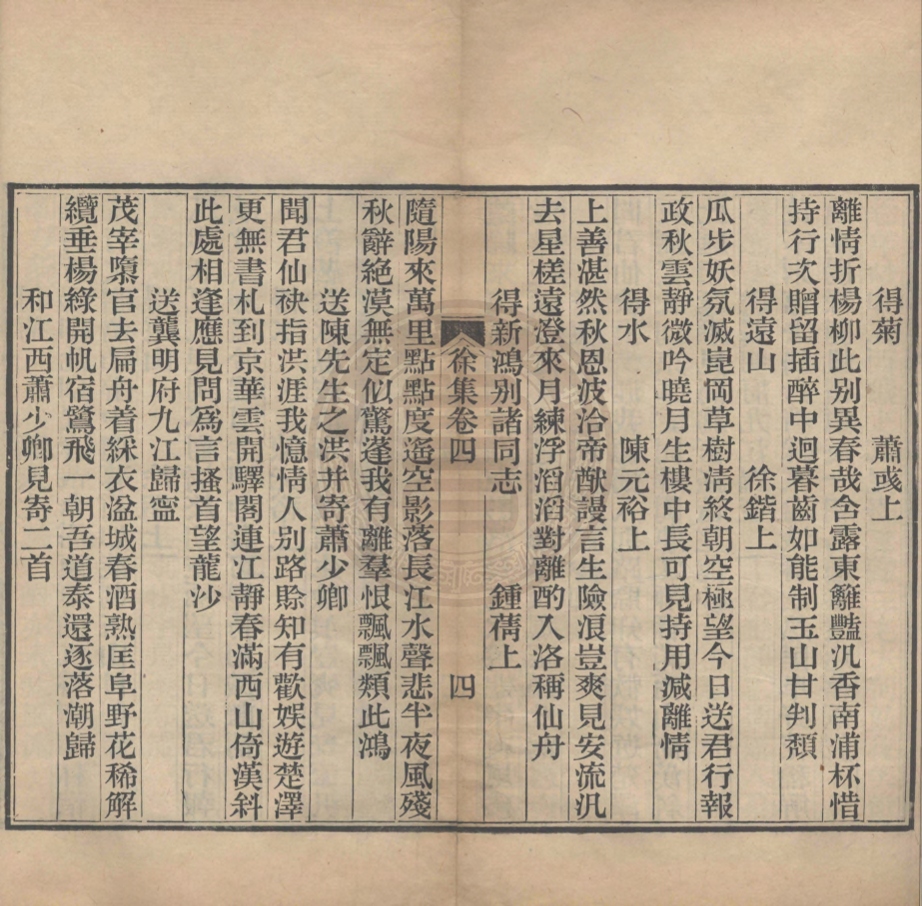 得菊　蕭彧上
離情折楊柳此别異春哉含露東籬豔汎香南浦杯惜
持行次贈留插醉中迴暮齒如能制玉山甘判頹
得遠山　徐鍇上
瓜步妖氛滅崑岡草樹淸終朝空極望今日送君行報
政秋雲靜微吟曉月生樓中長可見持用減離情
得水　陳元裕上
上善湛然秋恩波洽帝猷謾言生險浪豈爽見安流汎
去星槎遠澄來月練浮滔滔對離酌入洛稱仙舟
得新鴻别諸同志　鍾蒨上
隨陽來萬里點點度遙空影落長江水聲悲半夜風殘
秋辭絶漠無定似驚蓬我有離羣恨飄飄類此鴻
送陳先生之洪井寄蕭少卿
聞君仙袂指洪涯我憶情人别路賒知有歡娛遊楚澤
更無書札到京華雲開驛閣連江靜春滿西山倚漢斜
此處相逢應見問爲言搔首望龍沙
送龔明府九江歸寧
茂宰隳官去扁舟着綵衣湓城春酒熟匡阜野花稀解
纜垂楊綠開帆宿鷺飛一朝吾道泰還逐落潮歸
和江西蕭少卿見寄二首
徐集卷四　四